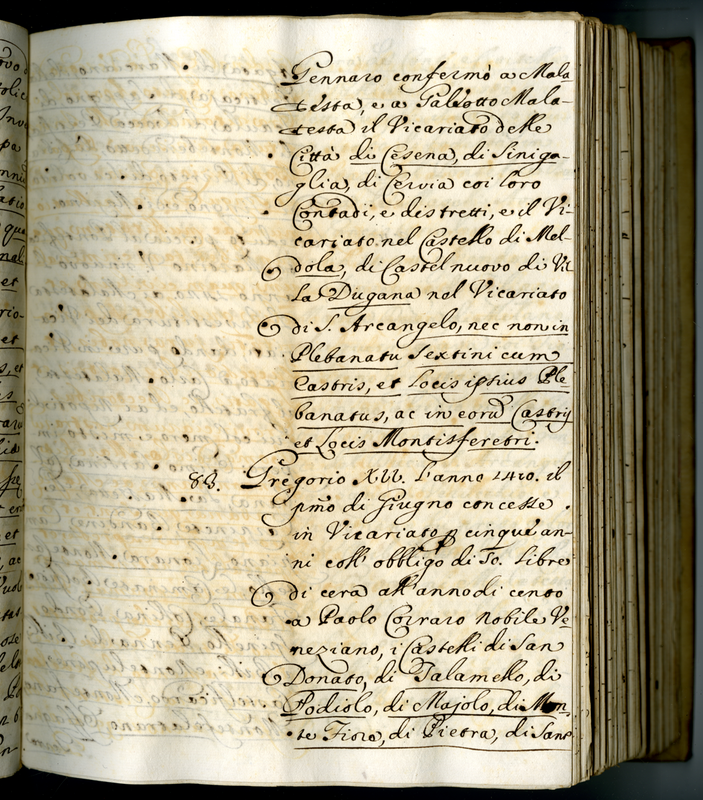 Gennaro confermò a Mala-
testa, e a Galeotto Mala-
testa il Vicariato delle
Città di Cesena, di Siniga-
glia, di Cervia coi loro
Contadi, e distretti, e il Vi-
cariato nel Castello di Mel-
dola, di Castel nuovo di Vil-
la Dugana nel Vicariato
di S. Arcangelo, nec non in
Plebanatu Sextini cum
Castris, et Locis ipsius Ple-
banatus, ac in eorū Castris
et Locis Montisferetri.
83. Gregorio XII. l'anno 1410. il
pmo di Giugno concesse
in Vicariato p cinque an-
ni coll' obbligo di 50. Libre
di cera all' anno di cento
a Paolo Corraro Nobile Ve-
neziano, i Castelli di San
Donato, di Talamello, di
Podiolo, di Majolo, di Mon-
te Fiore, di Pietra, di San